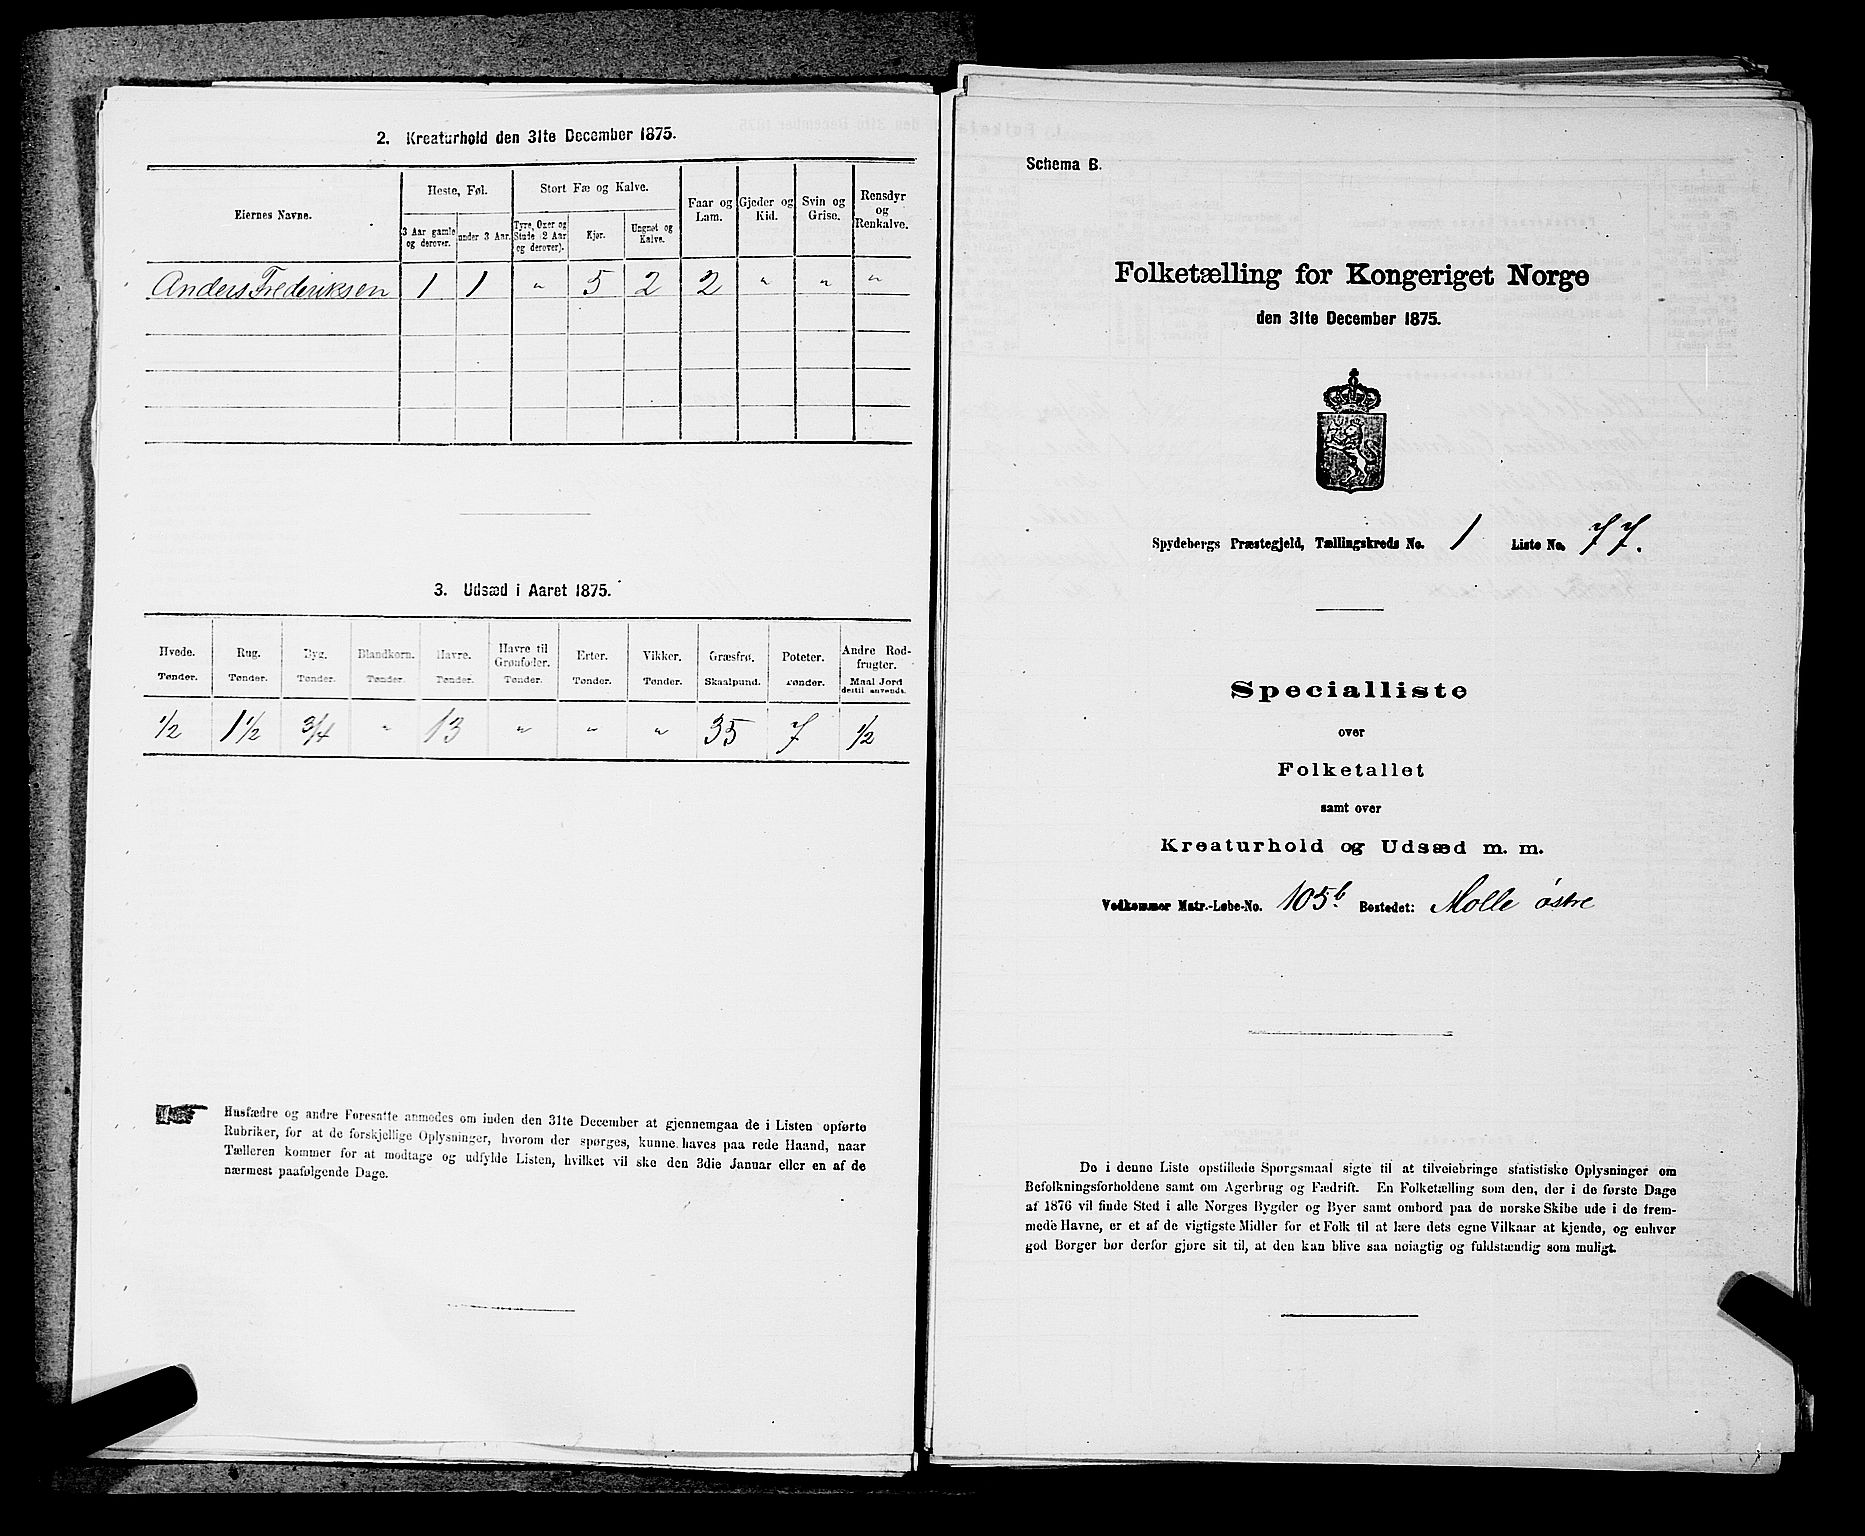 2. Kreaturhold den 31te December 1875.
Eiernes Navne.
Heste, Føl.
3 Aar gamle og derover.
under 3 Aar.
Stort Fæ og Kalve.
Tyre, Oxer og Stude 2 Aar og derover).
Kjør.
Ungnøt og Kalve.
Faar og Lam.
Gjeder og Kid.
Svin og Grise.
Rensdyr og Renkalve.
Anders Frederiksen 1 1 " 5 2 2 " " "
3. Udsæd i Aaret 1875.
Hvede. Rug. Byg. Blandkorn. Havre. Havre til Grønfoder. Erter. Vikker. Græsfrø. Poteter. Andre Rodfrugter.
Tønder. Tønder. Tønder. Tønder. Tønder. Tønder. Tønder. Tønder. Skaalpund. Tønder. Maal Jord dertil anvendt.
1/2 1 1/2 3/4 " 13 " " " 35 7 1/2
Husfædre og andre Foresatte anmodes om inden den 31te December at gjennemgaa de i Listen opførte
Rubriker, for at de forskjellige Oplysninger, hvorom der spørges, kunne haves paa rede Haand, naar
Tælleren kommer for at modtage og udfylde Listen, hvilket vil ske den 3die Januar eller en af de
nærmest paafølgende Dage.
Schema B.
Folketælling for Kongeriget Norge
den 31te December 1875.
Spydebergs Præstegjeld, Tællingskreds No. 1 Liste No. 77.
Specialliste
over
Folketallet
samt over
Kreaturhold og Udsæd m. m.
Vedkommer Matr.-Løbe-No. 105b. Bostedet: Molle østre
De i denne Liste opstillede Spørgsmaal sigte til at tilveiebringe statistiske Oplysninger om
Befolkningsforholdene samt om Agerbrug og Fædrift. En Folketælling som den, der i de første Dage
af 1876 vil finde Sted i alle Norges Bygder og Byer samt ombord paa de norske Skibe ude i de frem-
mede Havne, er et af de vigtigste Midler for et Folk til at lære dets egne Vilkaar at kjende, og enhver
god Borger bør derfor gjøre sit til, at den kan blive saa nøiagtig og fuldstændig som muligt.